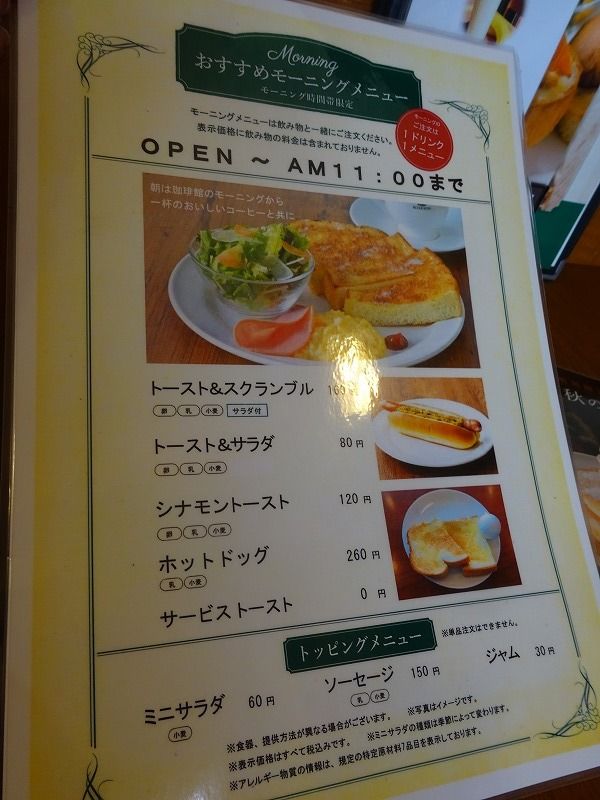 Morning
おすすめモーニングメニュー
モーニング時間帯限定
モーニングメニューは飲み物と一緒にご注文ください。
表示価格に飲み物の料金は含まれておりません。
モーニングの
ご注文は
1ドリンク
1メニュー
OPEN ～ AM11:00まで
朝は珈琲館のモーニングから
一杯のおいしいコーヒーと共に
トースト&スクランブル
卵 乳 小麦 サラダ付
トースト&サラダ 80円
卵 乳 小麦
シナモントースト 120円
卵 乳 小麦
ホットドッグ 260円
乳 小麦
サービストースト 0円
トッピングメニュー
※単品注文はできません。
ミニサラダ 60円
小麦
ソーセージ 150円
乳 小麦
ジャム 30円
※食器、提供方法が異なる場合がございます。 ※写真はイメージです。
※表示価格はすべて税込みです。 ※ミニサラダの種類は季節によって変わります。
※アレルギー物質の情報は、規定の特定原材料7品目を表示しております。